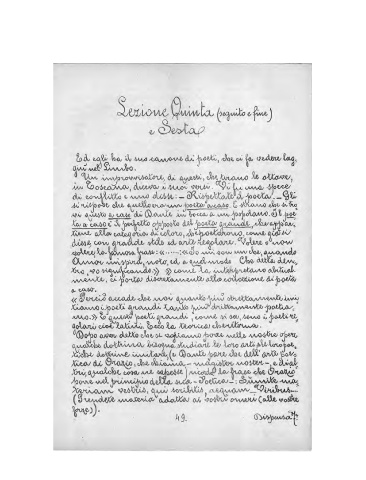 Lezione Quinta (seguito e fine)
e Sesta
Ed egli ha il suo canone di poeti, che ci fa vedere lag-
giù nel Limbo.
Un improvvisatore, di questi, che tirano le ottave,
in Toscana, diceva i suoi versi. Vi fu una specie
di conflitto e uno disse: – Rispettate il poeta –. Gli
si rispose che quello era un poeta a caso. È strano che si tro-
vi questo a caso di Dante in bocca a un popolano. Il poe-
ta a caso è il perfetto opposto del poeta grande, che appar-
tiene alla categoria di coloro, che poetarono, come già si
disse, con grande stile ed arte regolare. Volere o non
volere la famosa frase: «·····: «Io mi son un che, quando
Amor mi spira, noto, ed a quel modo Che detta den-
tro, vo significando.» come la interpretano abitual-
mente, ci porta direttamente alla collezione di poeta
a caso.
« Perciò accade che non quanto più strettamente imi-
tiamo i poeti grandi, tanto più drittamente poetia-
mo.» E questi poeti grandi, come si sa, sono i poeti re-
golari cioè latini. Ecco la teorica che ritorna.
Dopo aver detto che si abbiano pose nelle nostre opere,
qualche dottrina bisogna studiare le loro arti
poetiche dottrine imitare (e Dante pare che dell'arte Poe-
tica di Orazio, che chiama – magister noster –, e
qualche cosa ne sapesse) ricorda la frase che Orazio
pone nel principio della sua – Poetica –: Sumite ma-
teriam vestris, qui scribitis, aequam Viribus –
(Prendete materia adatta ai vostri omeri (alle vostre
forze)).
49. Dispensa 7ª